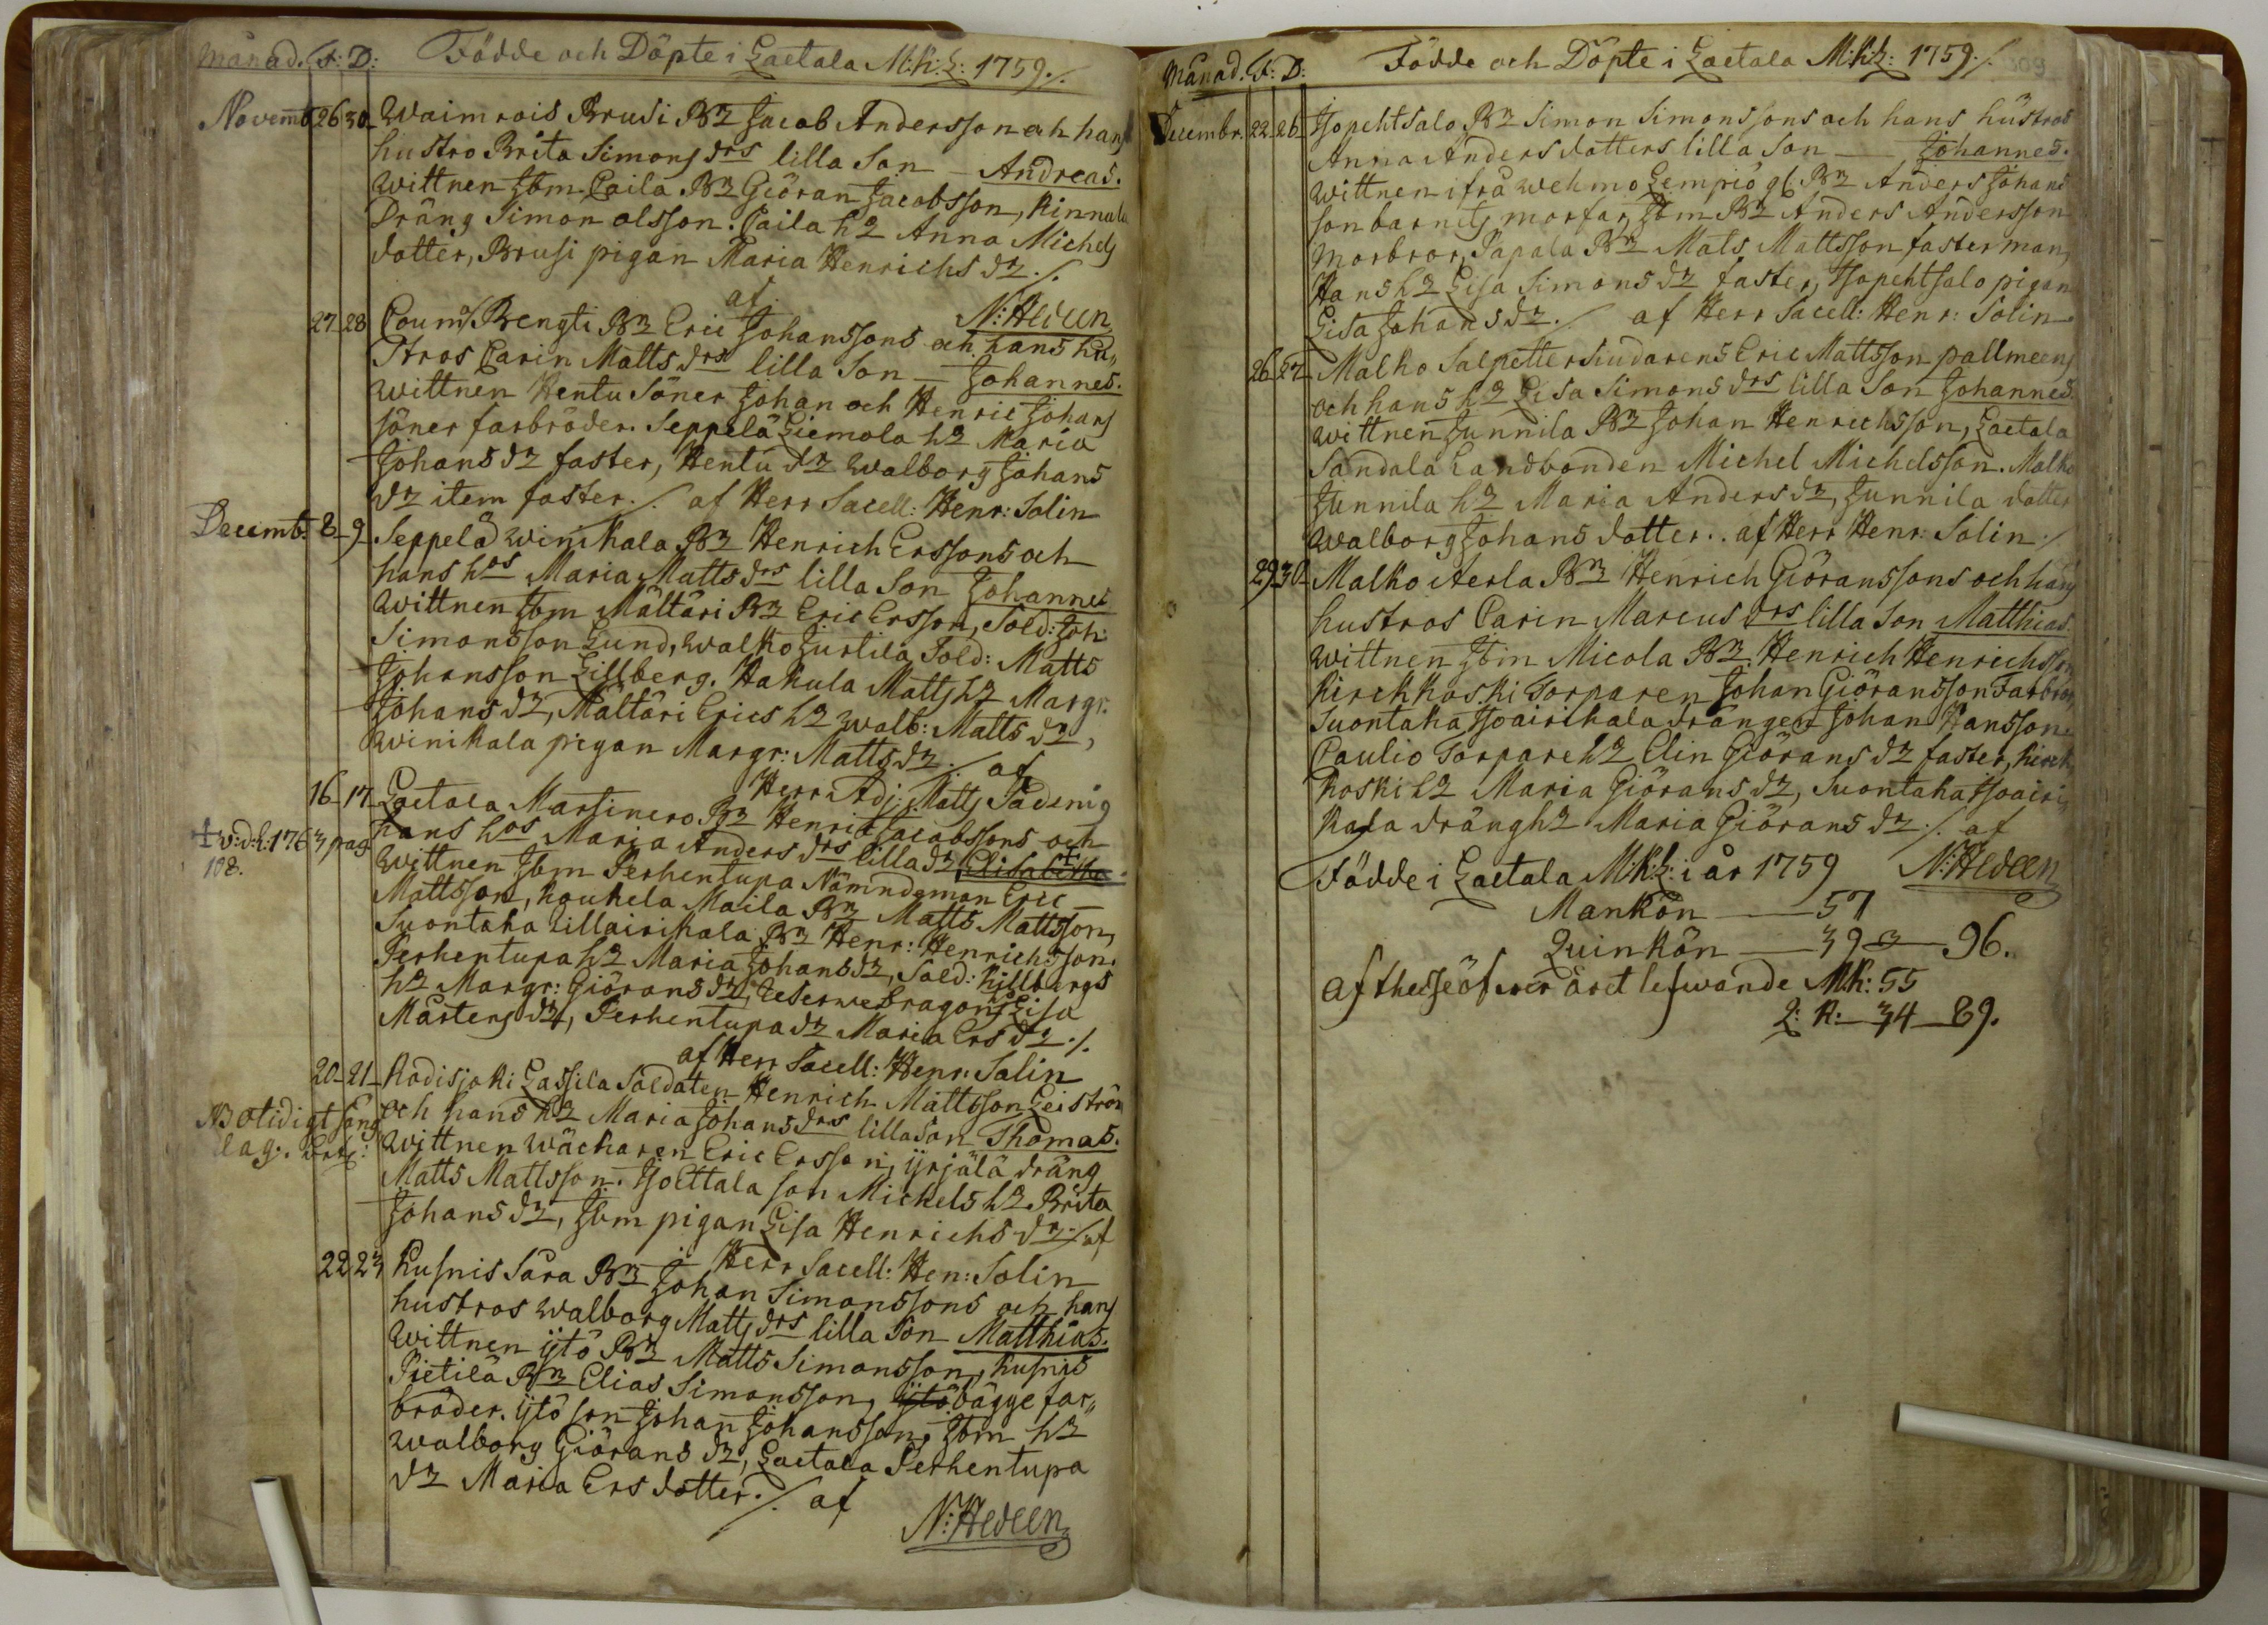 Månad. F: D: Födde och Döpte i Laetala M:k:L: 1759./.
Novemb. 26 30 Waimrois Brusi Br Jacob Andersson och hans
hustro Brita Simons drs lilla Son Andreas.
Wittnen Jbm. Caila Br Giöran Jacobsson, Kinnala
Dräng Simon olsson. Caila h2 Anna Michels
dotter, Brusi pigan Maria Henrichs dr./.
af N: Hedeen
27 28 Bengti Br Eric Johanssons och hans hu„
stros Carin Matts drs lilla Son Johannes.
Wittnen Hentu Söner Johan och Henric Johans
söner farbröder. Seppelä Liemola h2 Maria
Johans dr faster, Hentu dr Walborg Johans
dr item faster./. af Herr Sacell: Henr: Solin
Decemb: 8 9 Seppelä Winikala Br Henrich Erssons och
hans hos Maria Matts drs lilla Son Johannes
Wittnen Jbm Mältäri Br Eric Ersson, Sold: Joh:
Simonsson Lund, Walko Jurtila Sold: Matts
Johansson Lillberg. Hakula Matts h2 Margr:
Johans dr, Mältäri Erics h2 Walb: Matts dr,
Winikala pigan Margr: Matts dr./. af
Herr Adj: Matts Padenig
16 17 Laetala Martinero Br Henric Jacobssons och
+ v: d: l: 1763 pag
108.
hans hos Maria Anders drs lilla dr Elisabetha
Wittnen Jbm Perhentupa Nämndeman Eric
Mattsson, Kaukela Maila Br Matts Mattsson,
Suontaka Lillairikala Br Henr: Henrichsson.
Perhentupa h2 Maria Johans dr, Sold: Killbergs
h2 Margr: Giörans dr, Reserwe Dragons Lisa
Mårtens dr, Perhentupa dr Maria Ers dr./.
af Herr Sacell: Henr: Solin
20 21 Kodisjoki Lassila Soldaten Henrich Mattsson Leiström
NB otidigt säng
lag.
och hans h2 Maria Johans drs lilla Son Thomas.
Wittnen Wäckaren Eric Ersson, ÿrjälä dräng
Matts Mattsson. Isoettala son Michels h2 Brita
Johans dr, Jbm pigan Lisa Henrichs dr./. af
Herr Sacell: Hen: Solin
22 23 Kusnis Sara Br Johan Simonssons och hans
hustros Walborg Matts drs lilla Son Matthias.
Wittnen ÿtö Br Matts Simonsson, Kusnis
Pietilä Br Elias Simonsson, ÿtö bägge far„
bröder. ÿtö son Johan Johansson, Jbm h2
Walborg Giörans dr, Laetala Perhentupa
dr Maria Ers dotter./. af
N: Hedeen
Månad. F: D: Födde och Döpte i Laetala M:k:L: 1759./. 309
Decembr. 22 26 Isopehtsalo Br Simon Simonssons och hans hustros
Anna Anders dotters lilla Son Johannes.
Wittnen ifrå Wehmo Lempiö gl. Br Anders Johans
son barnets morfar, Jbm Br Anders Andersson
morbror, Papala Br Mats Mattsson fasterman,
Hans h2 Lisa Simons dr faster, Isopehtsalo pigan
Lisa Johans dr./. af Herr Sacell: Henr: Solin
26 27 Malko Salpettersiudarens Eric Mattsson pallmeens
och hans h2 Lisa Simons drs lilla Son Johannes.
Wittnen Junnila Br Johan Henrichsson, Laetala
Sandala Landbonden Michel Michelsson. Malko
Junnila h2 Maria Anders dr, Junnila dotter
Walborg Johans dotter.. af Herr Henr: Solin./
29 30 Malko Aerla Br Henrich Giöranssons och hans
hustros Carin Marcus drs lilla Son Matthias.
Wittnen Jbm Micola Br Henrich Henrichsson
Kirckkoski Torparen Johan Giöransson Farbror,
Suontaka Isoairikala drängen Johan Hansson.
Caulio Torpare h2 Elin Giörans dr faster, Kirck
koski h2 Maria Giörans dr, Suontaka Isoairi
kala dräng h2 Maria Giörans dr./. af
Födde i Laetala M:K:L: i år 1759 N: Hedeen
Mankön 57
Quinkön 39 96.
af thesse öfwer året lefwande MK: 55
Q: K: 34 89.